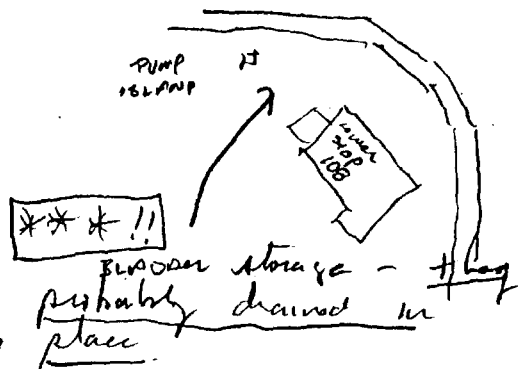 PUMP
ISLAND
108
** * !!
BLADDER storage - they
probably drained in
place.